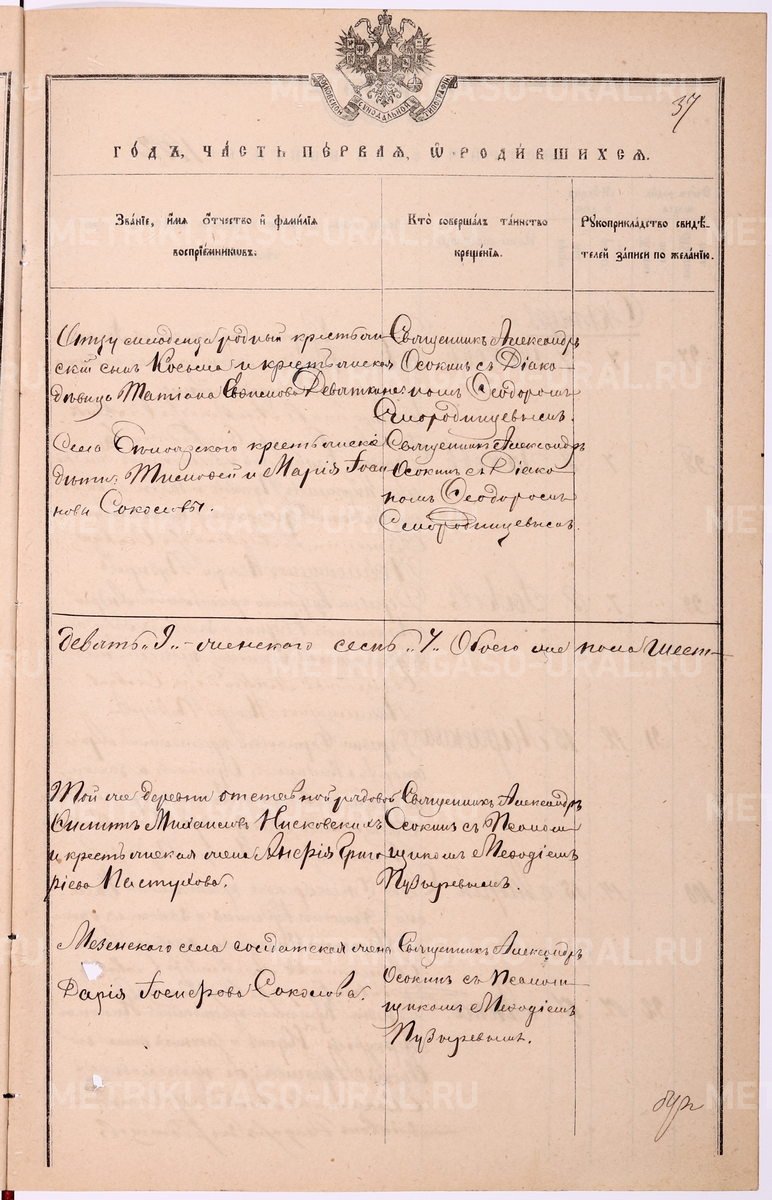 МОСКОВСКОЙ СѴНОДАЛЬНОЙ ТИПОГРАФІИ
37
ГОДЪ, ЧАСТЬ ПЕРВАЯ, Ѡ РОДИВШИХСЯ.
Званіе, имя отчество и фамилія
воспріемниковъ.
Кто совершалъ таинство
крещенія.
Рукоприкладство свидѣ-
телей записи по желанію.
Отцу младенца родный крестьян-
скій сынъ Косьма и крестьянская
дѣвица Татіана Евфимова Деваткина.
Священникъ Александръ
Осокинъ съ Діако-
номъ Ѳеодоромъ
Смородинцевымъ.
Села крестьянскіе
дѣти: Тимоѳей и Марія Іоан-
новы Соколовы.
Священникъ Александръ
Осокинъ съ Діако-
номъ Ѳеодоромъ
Смородинцевымъ.
девять „9„ - женскаго семь „7„ Обоего же пола шест-
Той же деревни отставной рядовой
Михаиловъ Писковскихъ
и крестьянская жена Григо-
ріева Пастухова.
Священникъ Александръ
Осокинъ съ Псалом-
щикомъ Меѳодіемъ
Пузыревымъ.
Мезенскаго села солдатская жена
Дарія Соколова.
Священникъ Александръ
Осокинъ съ Псалом-
щикомъ Меѳодіемъ
Пузыревымъ.
METRIKI.GASO-URAL.RU